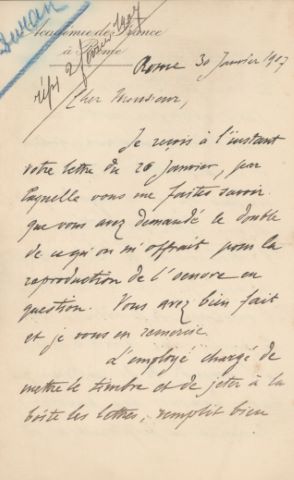 Duran
Académie de France
à Rome
rép 2 février 1907
Rome 30 Janvier 1907
Cher Monsieur,
Je reçois à l'instant
votre lettre du 26 Janvier, par
laquelle vous me faites savoir
que vous avez demandé le double
de ce qu'on m'offrait pour la
reproduction de l'oeuvre en
question. Vous avez bien fait
et je vous en remercie
L'employé chargé de
mettre le timbre et de jeter à la
boîte les lettres, remplit bien